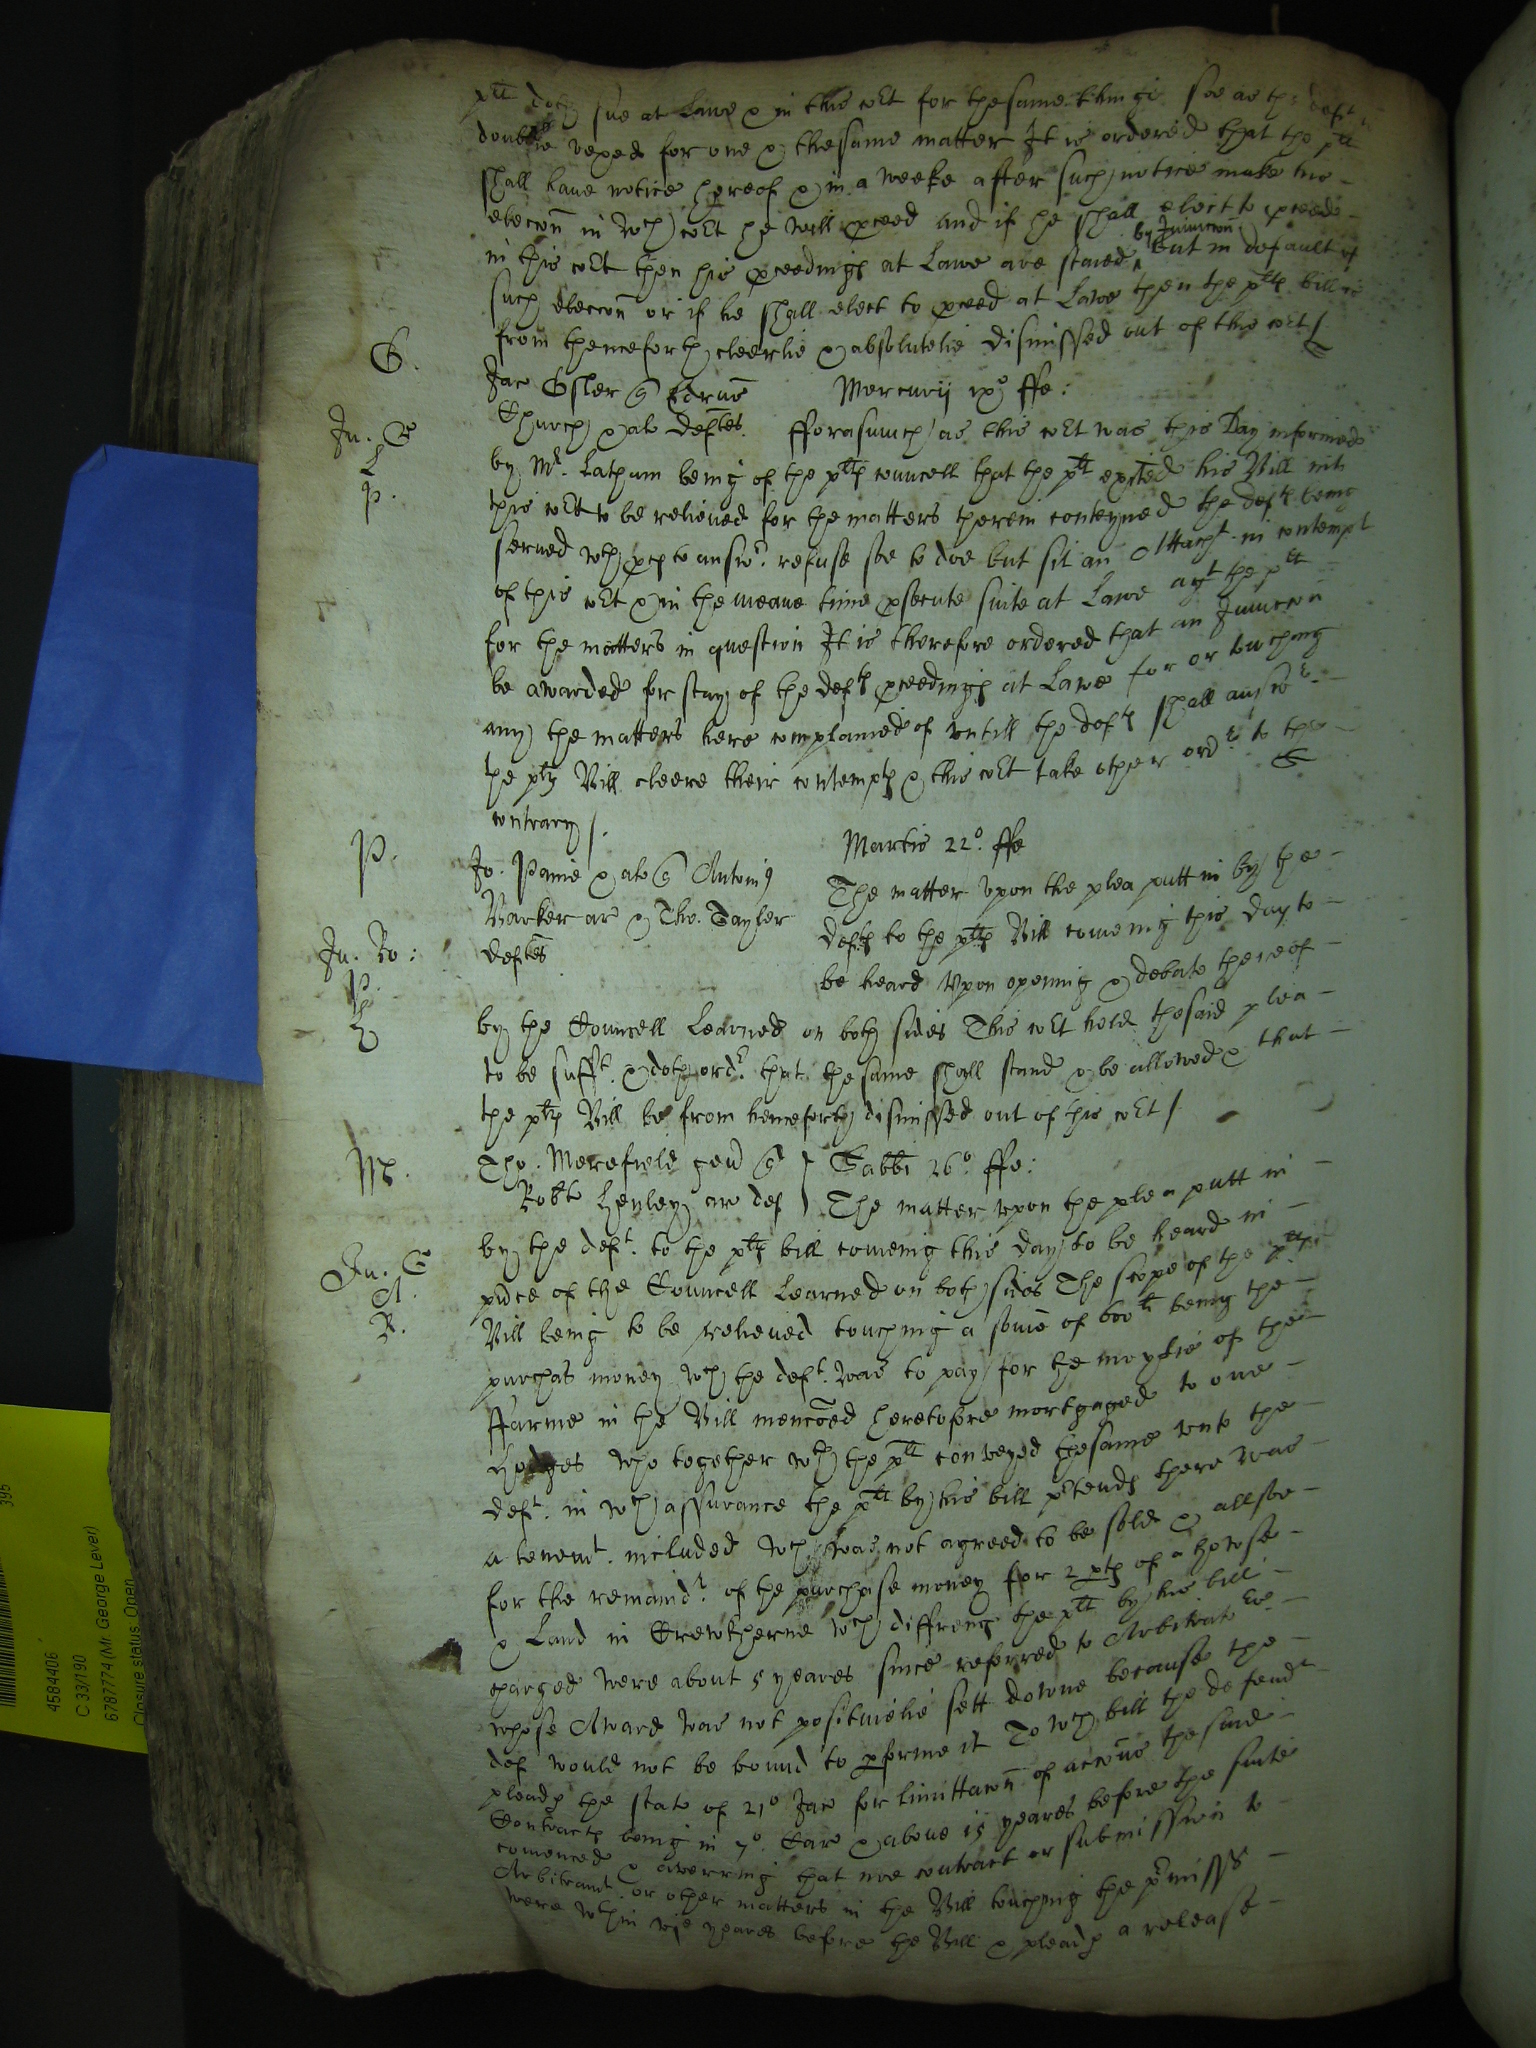 plt doth sue at Lawe & in this Cort for thesame things soe as the deft is
doublie vexed for one & thesame matter It is ordered that the plt
shall have notice hereof & in a weeke after such notice make his
eleccon in wch Cort he will pceed and if he shall elect to pceede
in this Cort then his pceedings at Lawe are staied by Iniunccon but in default of
such eleccon or if he shall elect to pceed at Lawe then the plts bill is
from thenceforth cleerlie & absolutelie dismissed out of this Cort /
G.
Jac Gsler
Church & al deftes
Mercurij ixo ffe:
Jn. G
L
P.
fforasmuch as this Cort was this Day informed
by Mr. Latham being of the plts councell that the plt exhited his Bill into
this Cort to be relieved for the matters therein conteyned the defts being
served wth pces to answr. refuse soe to doe but sit an Attachmt in contempt
of this Cort & in the meane time psecute suite at Lawe agt the plt
for the matters in question It is therefore ordered that an Iniunccon
be awarded for stay of the defts pceedings at Lawe for or touching
any the matters here complained of untill the defts shall answr.
the plts Bill cleere their contempts & this Cort take other ordr to the
contrary /.
P.
Jo. Paine & al Antoniu
Barker ar & Tho. Tayler
deftes
Martis 22o. ffe
Jn. Ro:
P.
L
The matter upon the plea putt in by the
defts to the plts Bill comeing this day to
be heard Upon opening & debate thereof
by the Councell Learned on both sides This Cort held thesaid plea
to be sufft. & doth ordr. that the same shall stand & be allowed & that
the plts Bill be from henceforth dismissed out of this Cort /
M.
Tho. Merefield gen
Robte Henley ar def
Sabbi 26o. ffe:
Jn. G
A.
R.
The matter upon the plea putt in
by the deft. to the plts bill comeing this day to be heard in
pnce of the Councell Learned on both sides The scope of the plts
Bill being to be relieved touching a some of 600li being the
purchas money wch the deft. was to pay for the moytie of the
ffarme in the Bill menconed heretofore mortgaged to one
Hodges who together wth the plt conveyed thesame unto the
deft. in wch assurance the plt by his bill prtends there was
a tenemt. included wch was not agreed to be sold & allsoe
for the remaindr. of the purchase money for 2 pts of a howse
& Land in Crewkherne wch diffrencs the plt by his bill
charged were about 5 yeares since referred to Arbitratrs.
whose Award was not positivelie sett downe because the
def would not be bound to pforme it To wch bill the defendt
pleads the state of 21o Jac for limittacon of accons thesaid
Contracts being in 7o. Car & above 15 yeares before the suite
comenced & averring that noe contract or submission to
Arbitramt. or other matters in the Bill touching the prmisss
were wthin vje yeares before the Bill & pleads a release
4584406
C 33/190
6787774 (Mr George Lever)
Closure status: Open